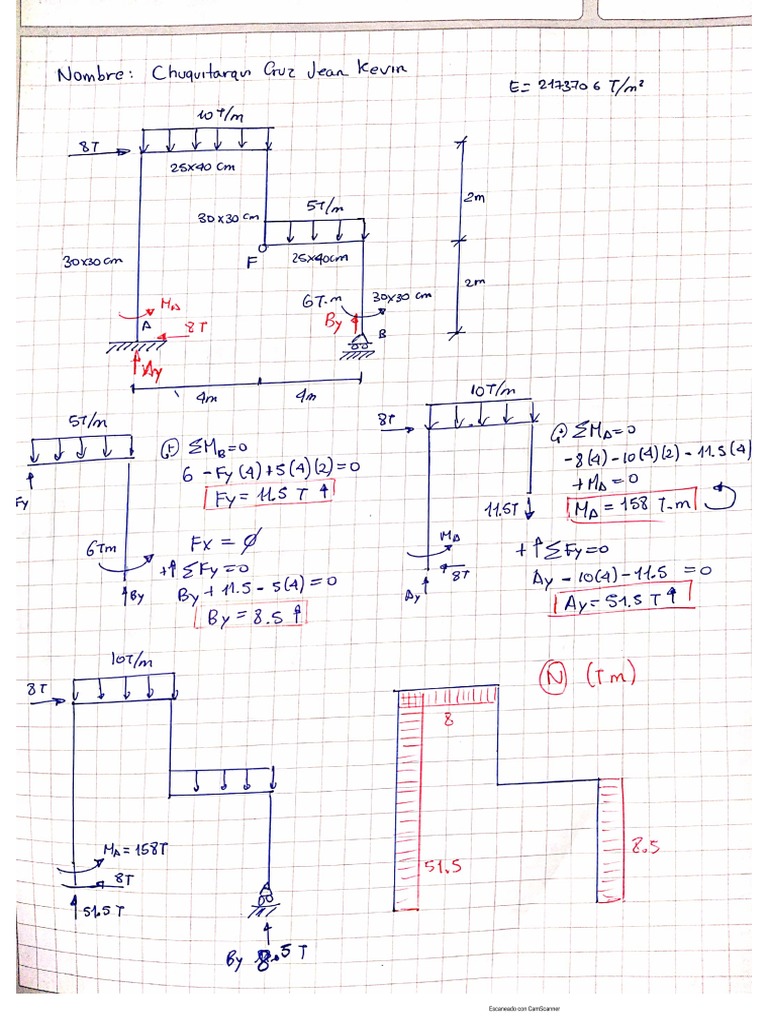 Nombre: Chuquitarqui Cruz Jean Kevin
E = 2173706 T/m²
10T/m
8T
25x40 cm
5T/m
2m
30x30 cm
F
25x40cm
30x30cm
2m
6T.m
30x30 cm
M_A
By
A
8T
B
Ay
4m
4m
5T/m
Fy
6Tm
By
(+) ΣM_B=0
6 - Fy(4) + 5(4)(2) = 0
Fy = 11.5 T ↑
Fx = ∅
+↑ ΣFy=0
By + 11.5 - 5(4) = 0
By = 8.5 ↑
10T/m
8T
11.5T
M_A
8T
Ay
(+) ΣM_A=0
-8(4)-10(4)(2)-11.5(4)
+M_A = 0
M_A = 158 T.m
+↑ ΣFy=0
Ay - 10(4) - 11.5 = 0
Ay = 51.5 T ↑
10T/m
8T
M_A = 158T
8T
51.5 T
By 8.5 T
N (Tm)
8
51.5
8.5
Escaneado con CamScanner